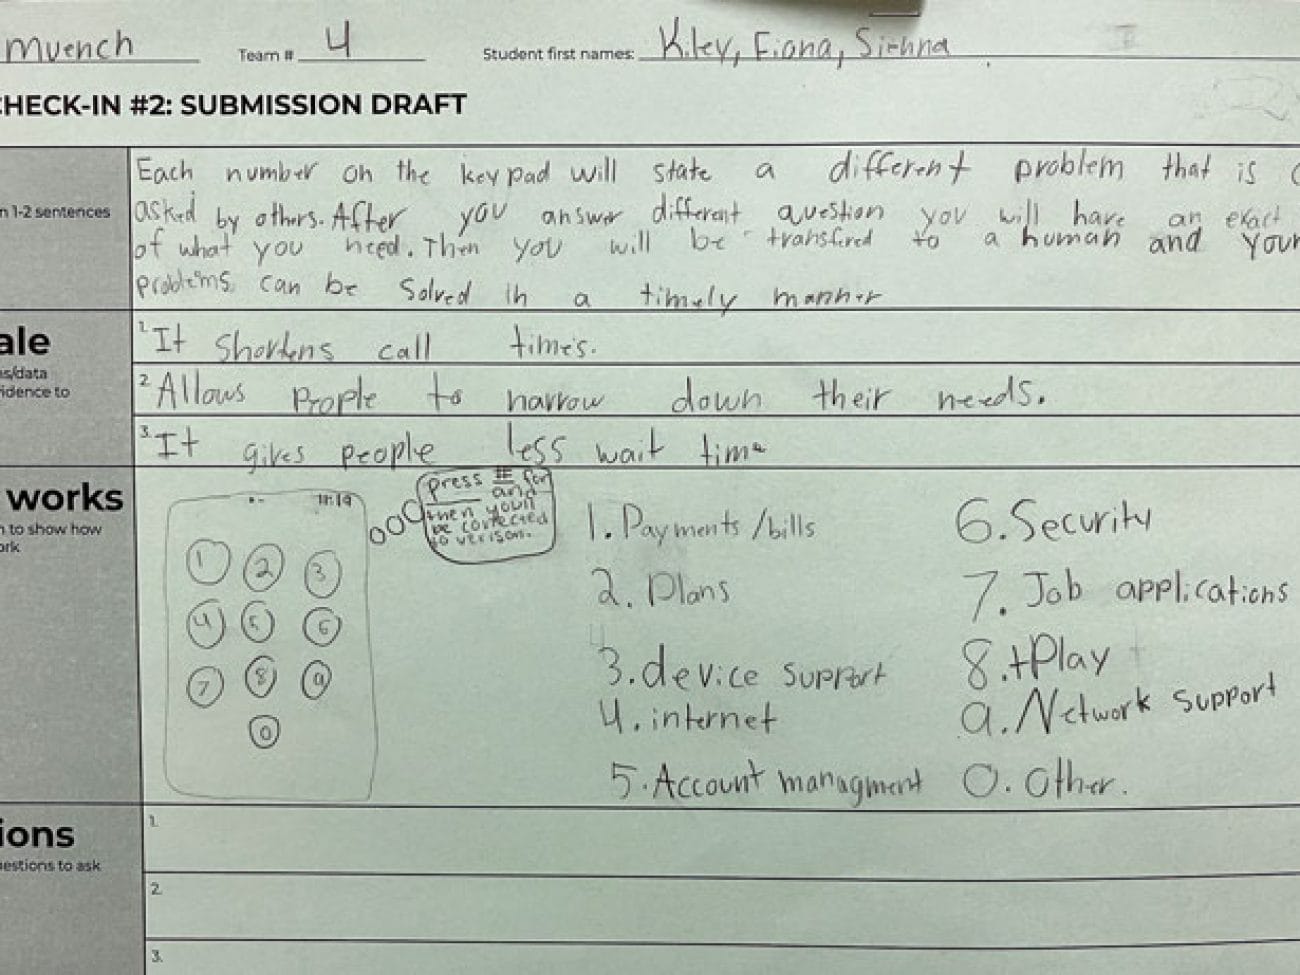 Muench Team # 4 Student first names: Kiley, Fiona, Sienna
CHECK-IN #2: SUBMISSION DRAFT
Each number on the keypad will state a different problem that is
n 1-2 sentences
asked by others. After you answer different question you will have an exact
of what you need. Then you will be transfired to a human and your
problems can be solved in a timely manner
ale
ns/data
idence to
1. It shortens call times.
2. Allows people to narrow down their needs.
3. It gives people less wait time
works
n to show how
ork
11:19
1 2 3
4 5 6
7 8 9
0
press # for
and
then you'll
be connected
to verison.
1. Payments/bills
2. Plans
3. device support
4. internet
5. Account managment
6. Security
7. Job applications
8. +Play
9. Network support
0. Other.
ions
estions to ask
1.
2.
3.